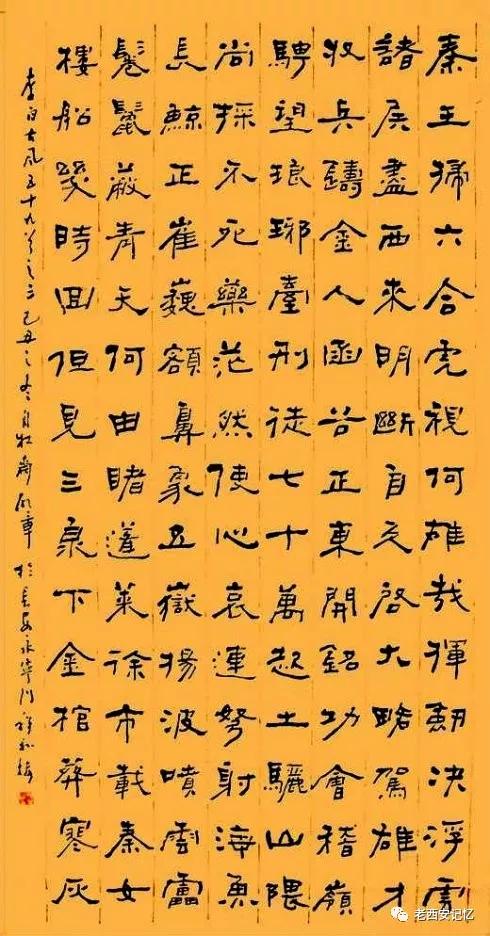 秦王掃六合虎視何雄哉揮劍決浮雲
諸侯盡西來明斷自天啓大略駕雄才
收兵鑄金人函谷正東開銘功會稽嶺
騁望琅琊臺刑徒七十萬起土驪山隈
尚採不死藥茫然使心哀連弩射海魚
長鯨正崔嵬額鼻象五嶽揚波噴雲雷
鬣蔽青天何由睹蓬萊徐市載秦女
樓船幾時回但見三泉下金棺葬寒灰
李白古風五十九首之三己丑之冬自牧齋章於長安永寧門
老西安记忆